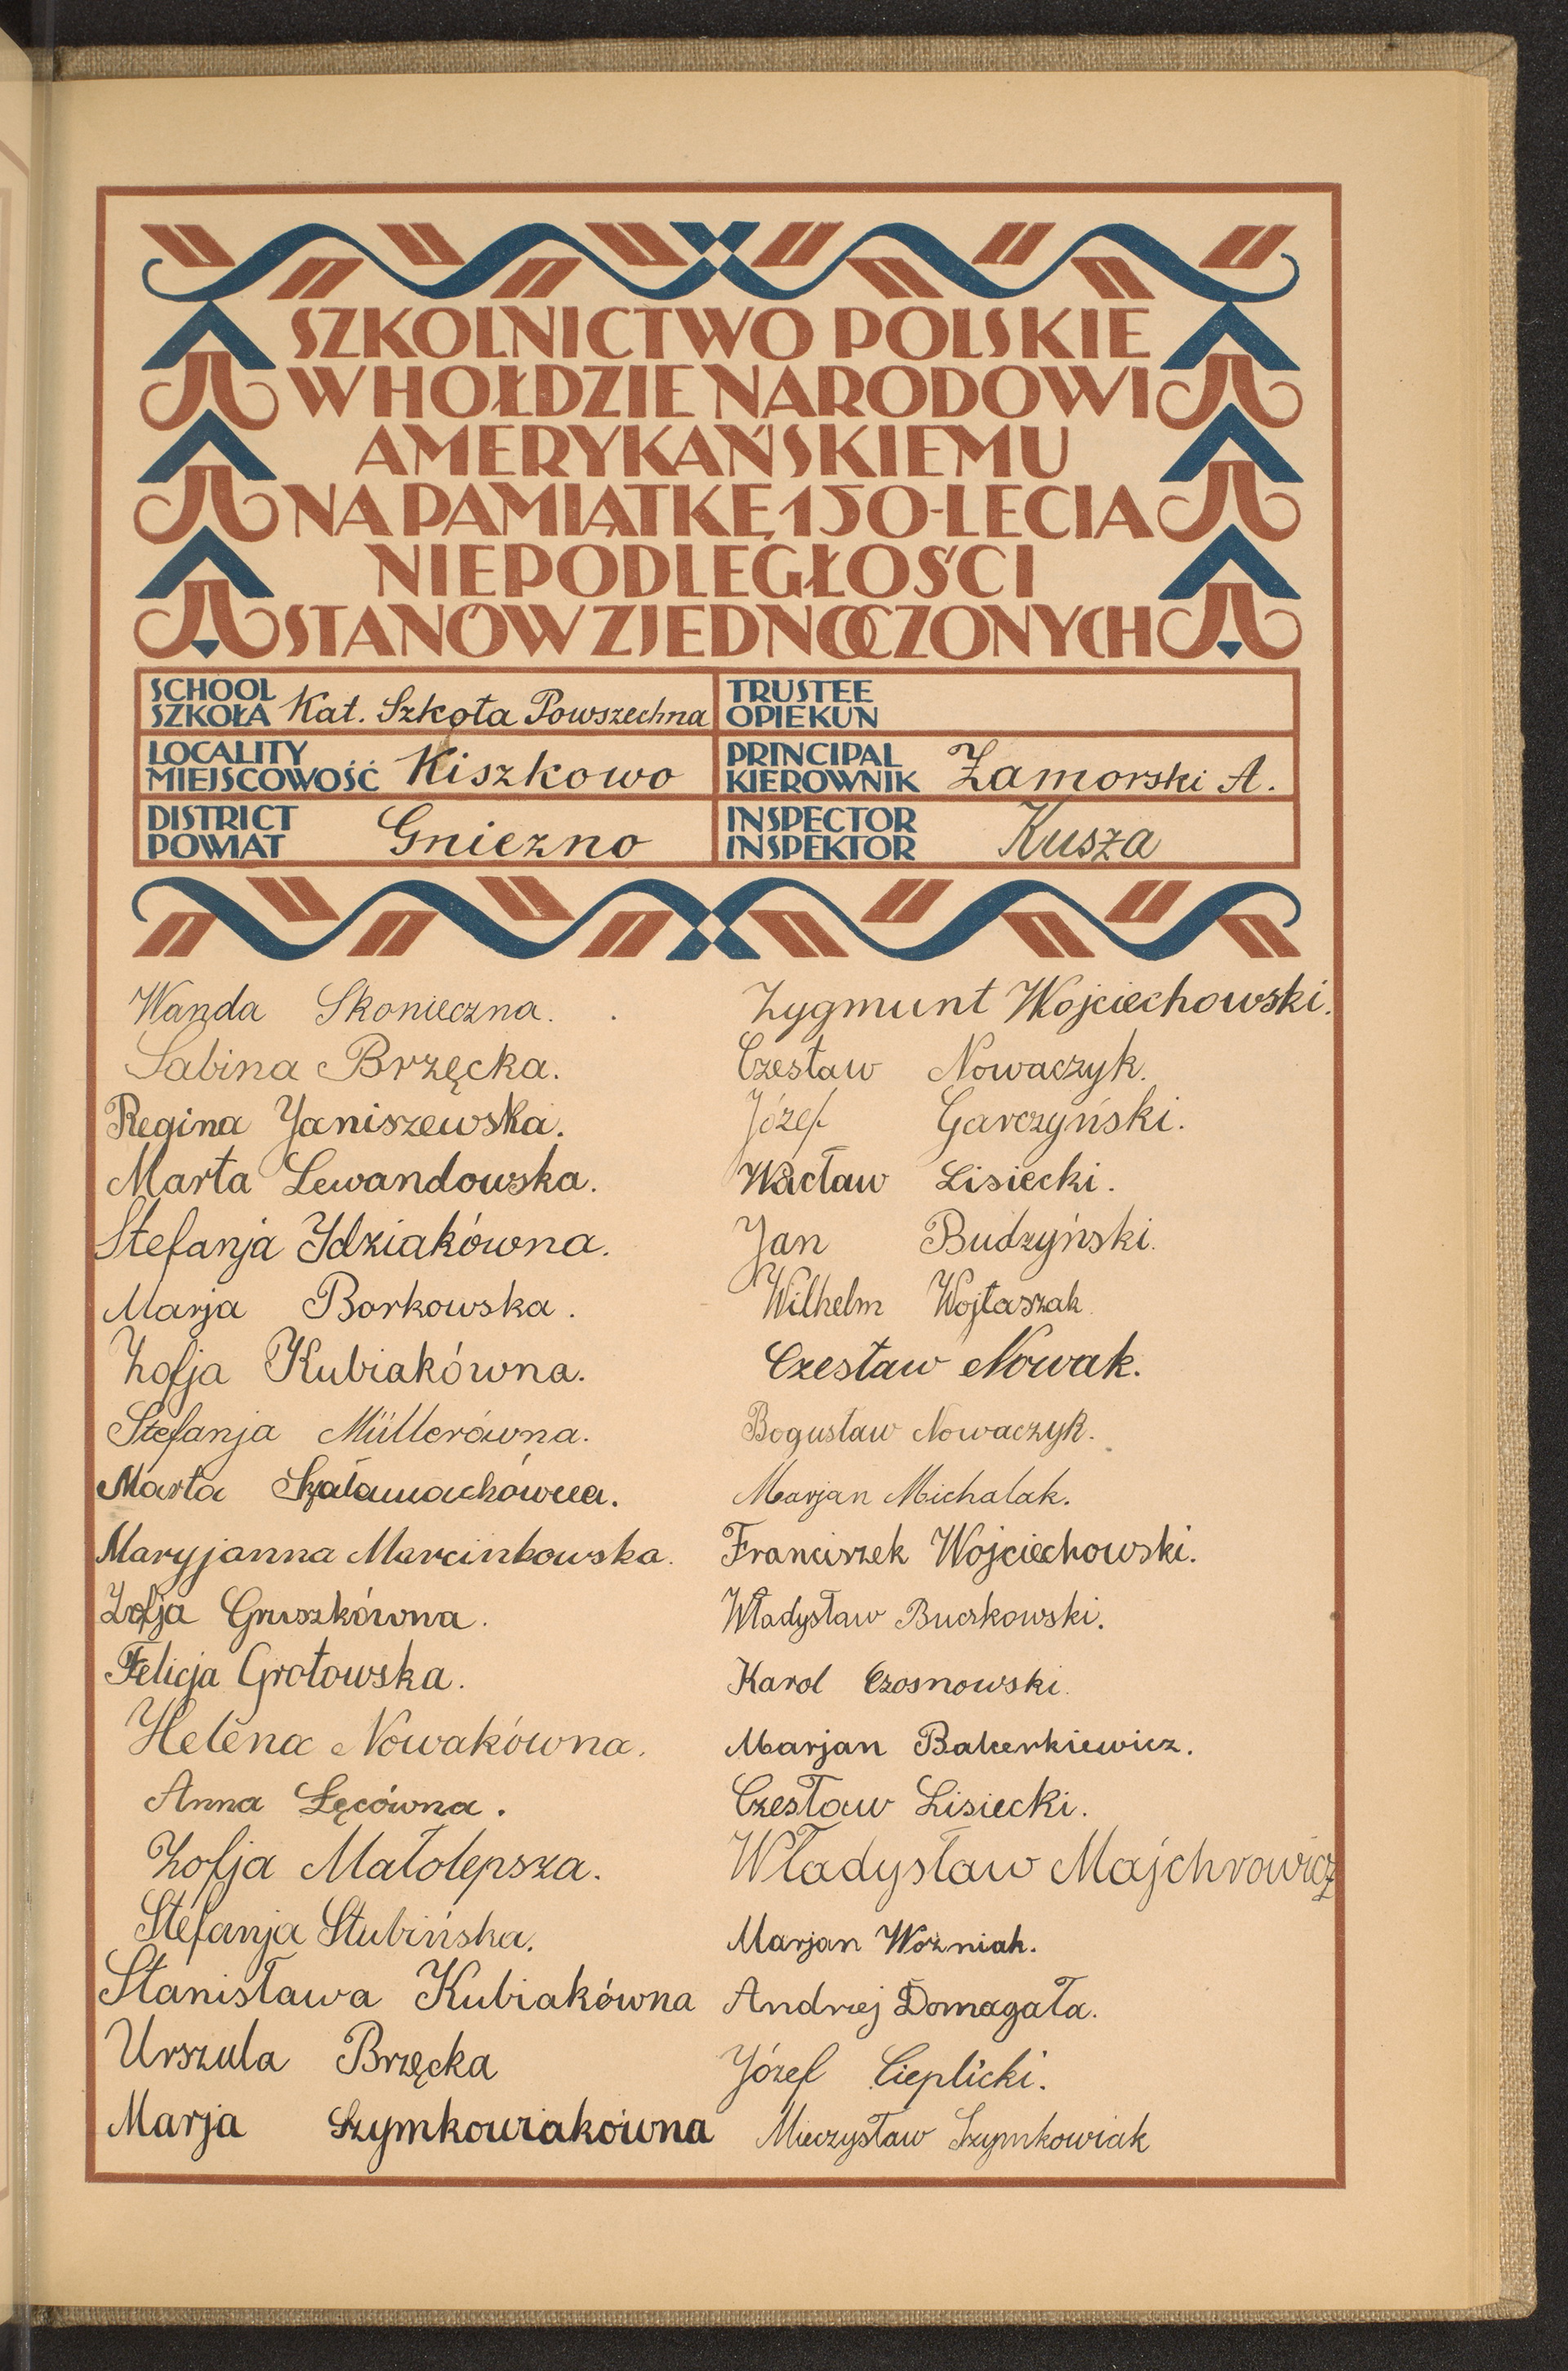 SZKOLNICTWO POLSKIE
W HOŁDZIE NARODOWI
AMERYKAŃSKIEMU
NA PAMIĄTKĘ 150-LECIA
NIEPODLEGŁOŚCI
STANÓW ZJEDNOCZONYCH
SCHOOL
SZKOŁA Kat. Szkoła Powszechna
TRUSTEE
OPIEKUN
LOCALITY
MIEJSCOWOŚĆ Kiszkowo
PRINCIPAL
KIEROWNIK Zamorski A.
DISTRICT
POWIAT Gniezno
INSPECTOR
INSPEKTOR Kusza
Wanda Skonieczna.
Sabina Brzęcka.
Regina Janiszewska.
Marta Lewandowska.
Stefanja Idziakówna.
Marja Borkowska.
Zofja Kubiakówna.
Stefanja Müllerówna.
Marta Szałamachówna.
Maryjanna Marcinkowska.
Zofja Gruszkówna.
Felicja Grotowska.
Helena Nowakówna.
Anna Łęcówna.
Zofja Małolepsza.
Stefanja Stubińska.
Stanisława Kubiakówna
Urszula Brzęcka
Marja Szymkowiakówna
Zygmunt Wojciechowski.
Czesław Nowaczyk.
Józef Garczyński.
Wacław Lisiecki.
Jan Budzyński.
Wilhelm Wojtaszak.
Czesław Nowak.
Bogusław Nowaczyk.
Marjan Michalak.
Franciszek Wojciechowski.
Władysław Buczkowski.
Karol Czosnowski.
Marjan Balcerkiewicz.
Czesław Lisiecki.
Władysław Majchrowicz
Marjan Woźniak.
Andrzej Domagała.
Józef Cieplicki.
Mieczysław Szymkowiak